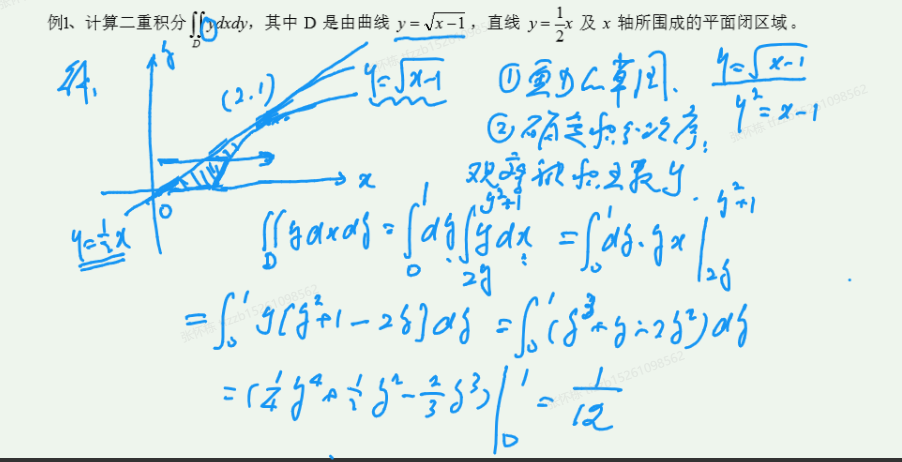 例1、计算二重积分∬_D ydxdy，其中 D 是由曲线 y=√(x-1)，直线 y=1/2 x 及 x 轴所围成的平面闭区域。
解、 y (2.1) y=√(x-1) ①画出草图. y=√(x-1)
y²=x-1
②确定积分次序;
x 观察被积函数y
0
y=1/2 x
∬_D ydxdy = ∫_0^1 dy ∫_{2y}^{y²+1} ydx = ∫_0^1 dy·yx |_{2y}^{y²+1}
= ∫_0^1 y[y²+1-2y]dy = ∫_0^1 (y³+y-2y²)dy
= (1/4 y⁴ + 1/2 y² - 2/3 y³) |_0^1 = 1/12